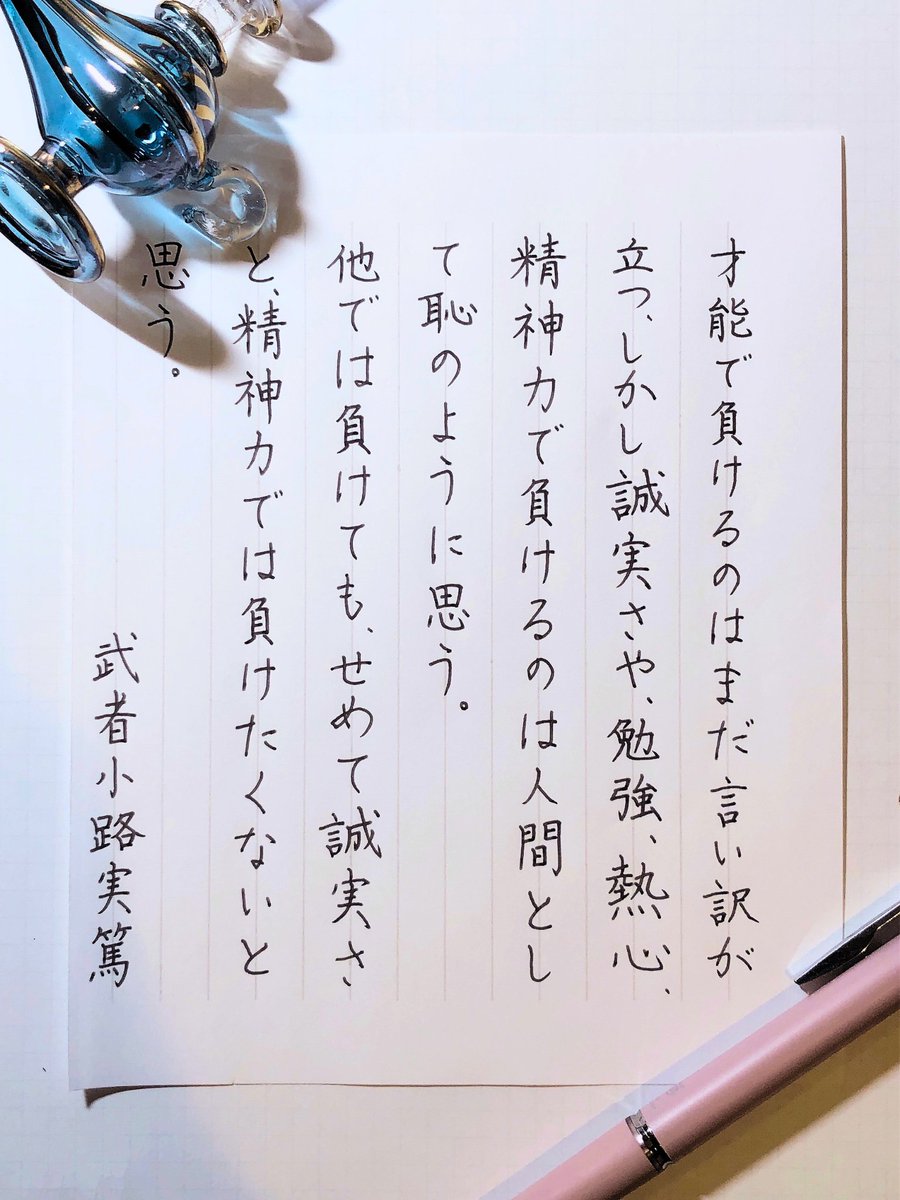 才能で負けるのはまだ言い訳が
立つ、しかし誠実さや、勉強、熱心、
精神力で負けるのは人間とし
て恥のように思う。
他では負けても、せめて誠実さ
と、精神力では負けたくないと
思う。
武者小路実篤